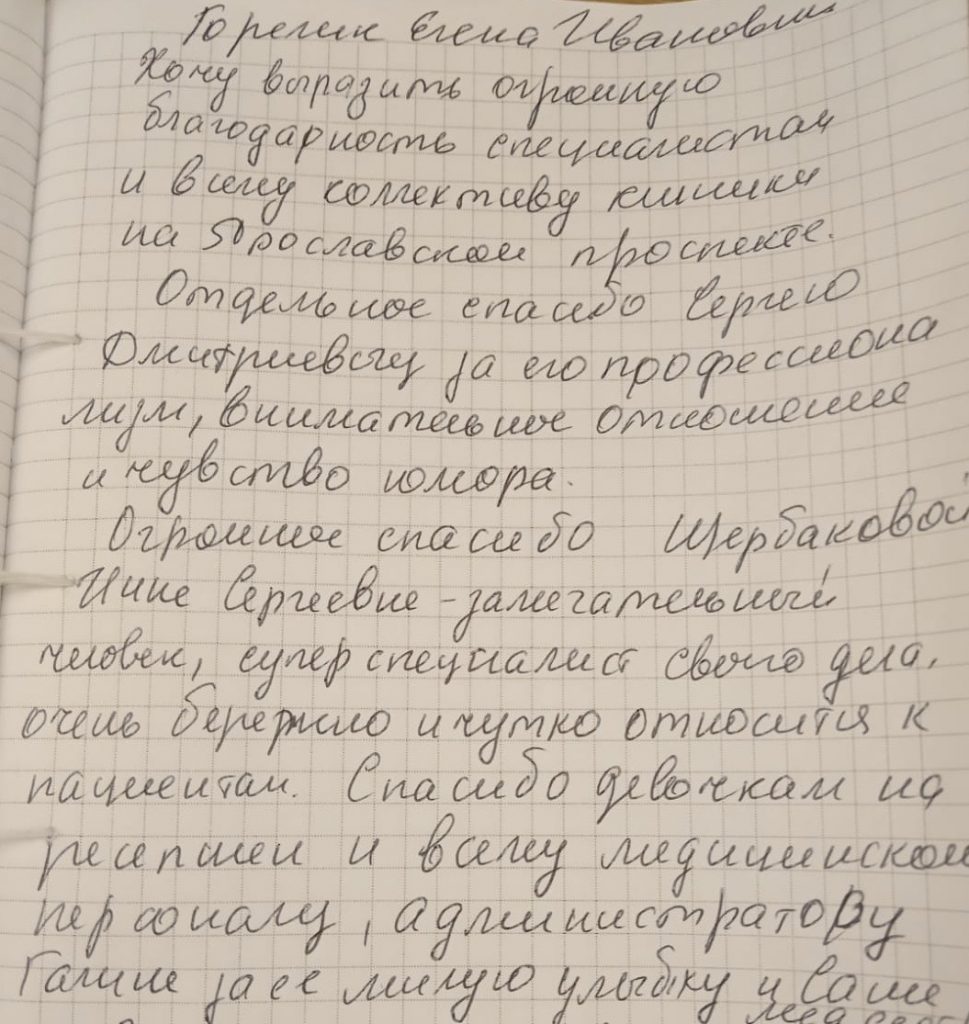 Горелик Елена Ивановна
Хочу выразить огромную
благодарность специалистам
и всему коллективу клиники
на Ярославском проспекте.
Отдельное спасибо Сергею
Дмитриевичу за его профессиона
лизм, внимательное отношение
и чувство юмора.
Огромное спасибо Щербаковой
Нине Сергеевне - замечательный
человек, супер специалист своего дела,
очень бережно и чутко относится к
пациентам. Спасибо девочкам на
ресепшен и всему медицинском
персоналу, администратору
Галине за ее милую улыбку и Саше